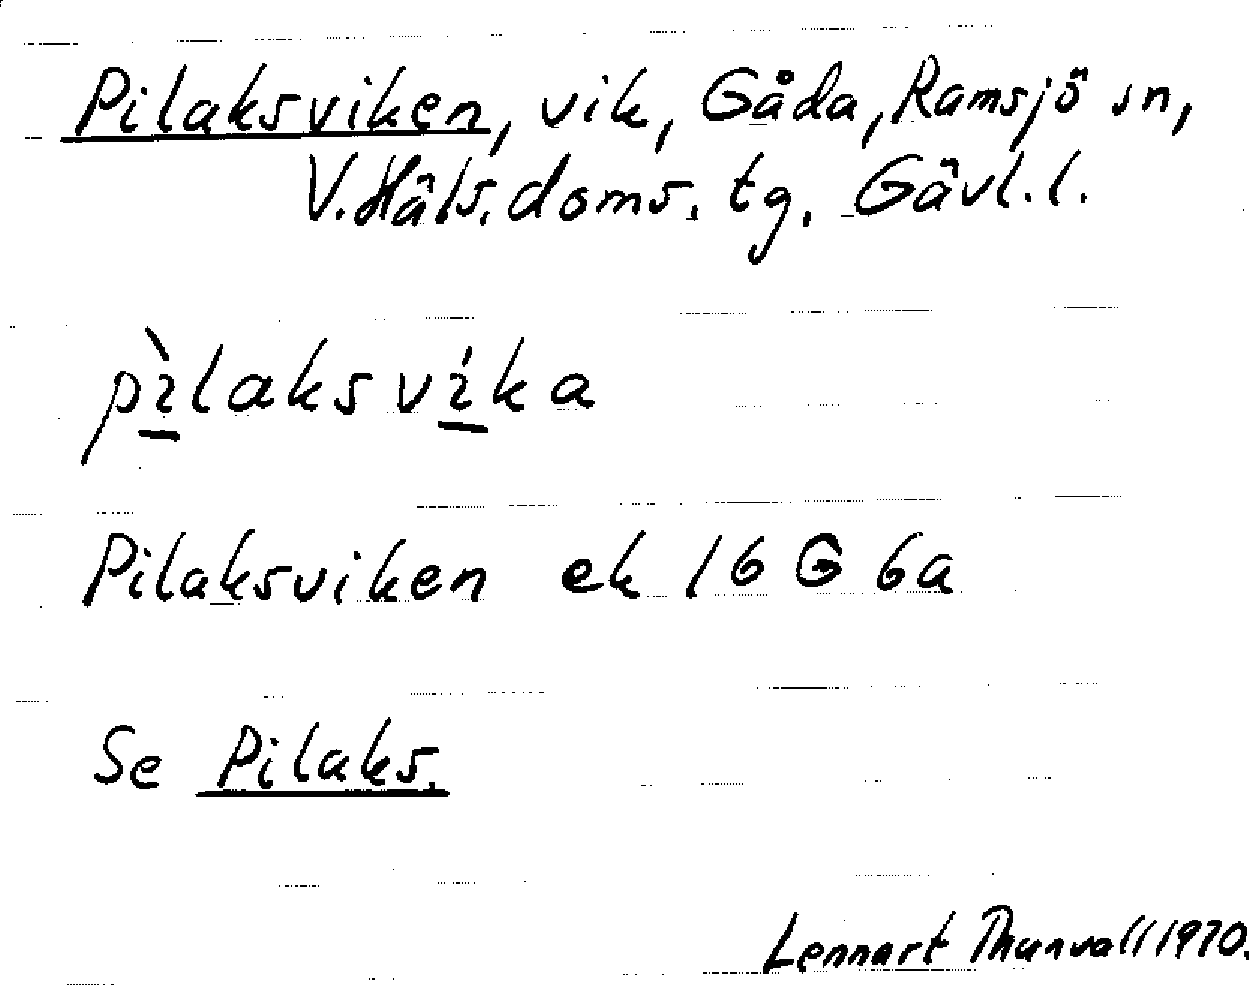 Pilaksviken, vik, Gåda, Ramsjö sn,
V. Häls. doms. tg. Gävl. l.
pìlaksvíka
Pilaksviken ek 16 G 6a
Se Pilaks.
Lennart Thunvall 1970.